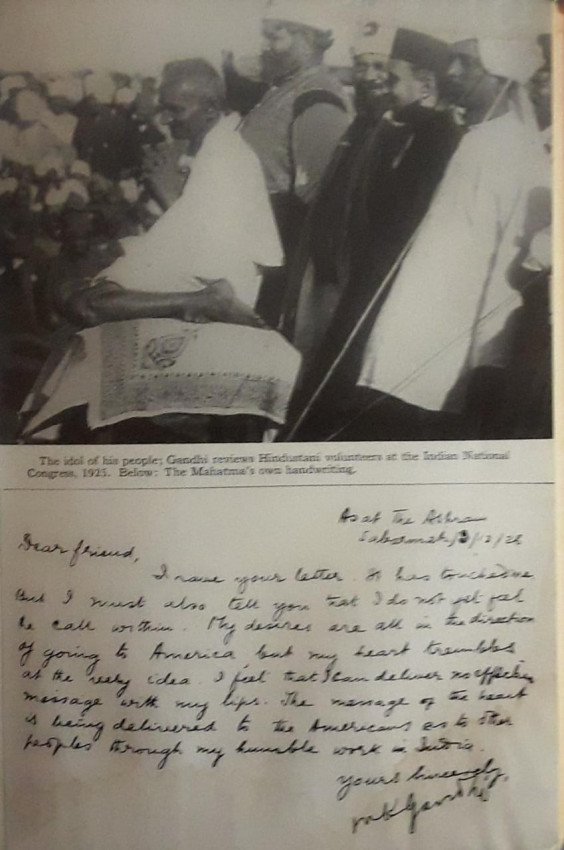 The idol of his people; Gandhi reviews Hindustani volunteers at the Indian National
Congress, 1925. Below: The Mahatma's own handwriting.
As at The Ashram
Sabarmati
Dear friend,
I have your letter. It has touched me.
But I must also tell you that I do not yet feel
the call within. My desires are all in the direction
of going to America but my heart trembles
at the very idea. I feel that I can deliver no effective
message with my lips. The message of the heart
is being delivered to the Americans as to other
peoples through my humble work in India.
Yours sincerely,
MKGandhi